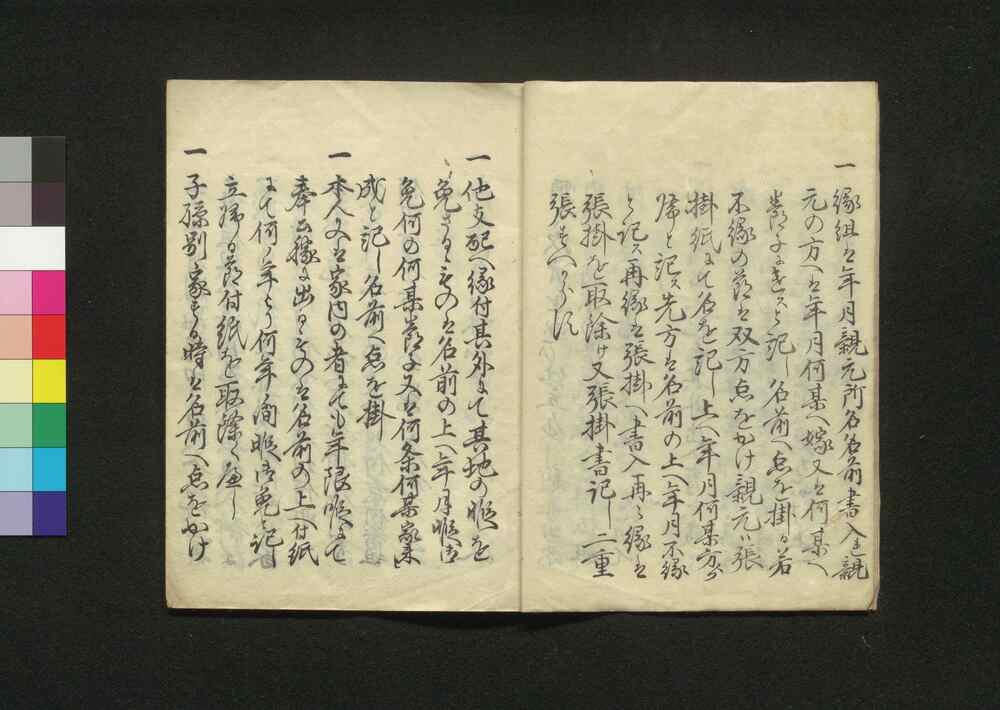 一縁組ハ年月親元所名名前書入レ親
元の方ヘハ年月何某ヘ嫁又ハ何某ヘ
養子ニ遣スと記し名前ヘ点を掛ケ若
不縁の節ハ双方点をかけ親元ハ張
掛紙ニて名を記し上ヘ年月何某方ゟ
帰と記ス先方ハ名前の上ヘ年月不縁
と記ス再縁ハ張掛ヘ書入再々縁ハ
張掛を取除け又張掛書記し二重
張すヘからす
一他支配ヘ縁付其外ニて其地の帳を
免さるゝものハ名前の上ヘ年月帳面
免何の何某節子又ハ何条何某家来ニ
成と記し名前ヘ点を掛
一本人又ハ家内の者ニても年限帳ニて
奉公稼ニ出るものハ名前の上ヘ付紙
ニて何年ゟ何年間帳面免と記し
立帰る節付紙を取除くヘし
一子孫別家する時ハ名前ヘ点をかけ